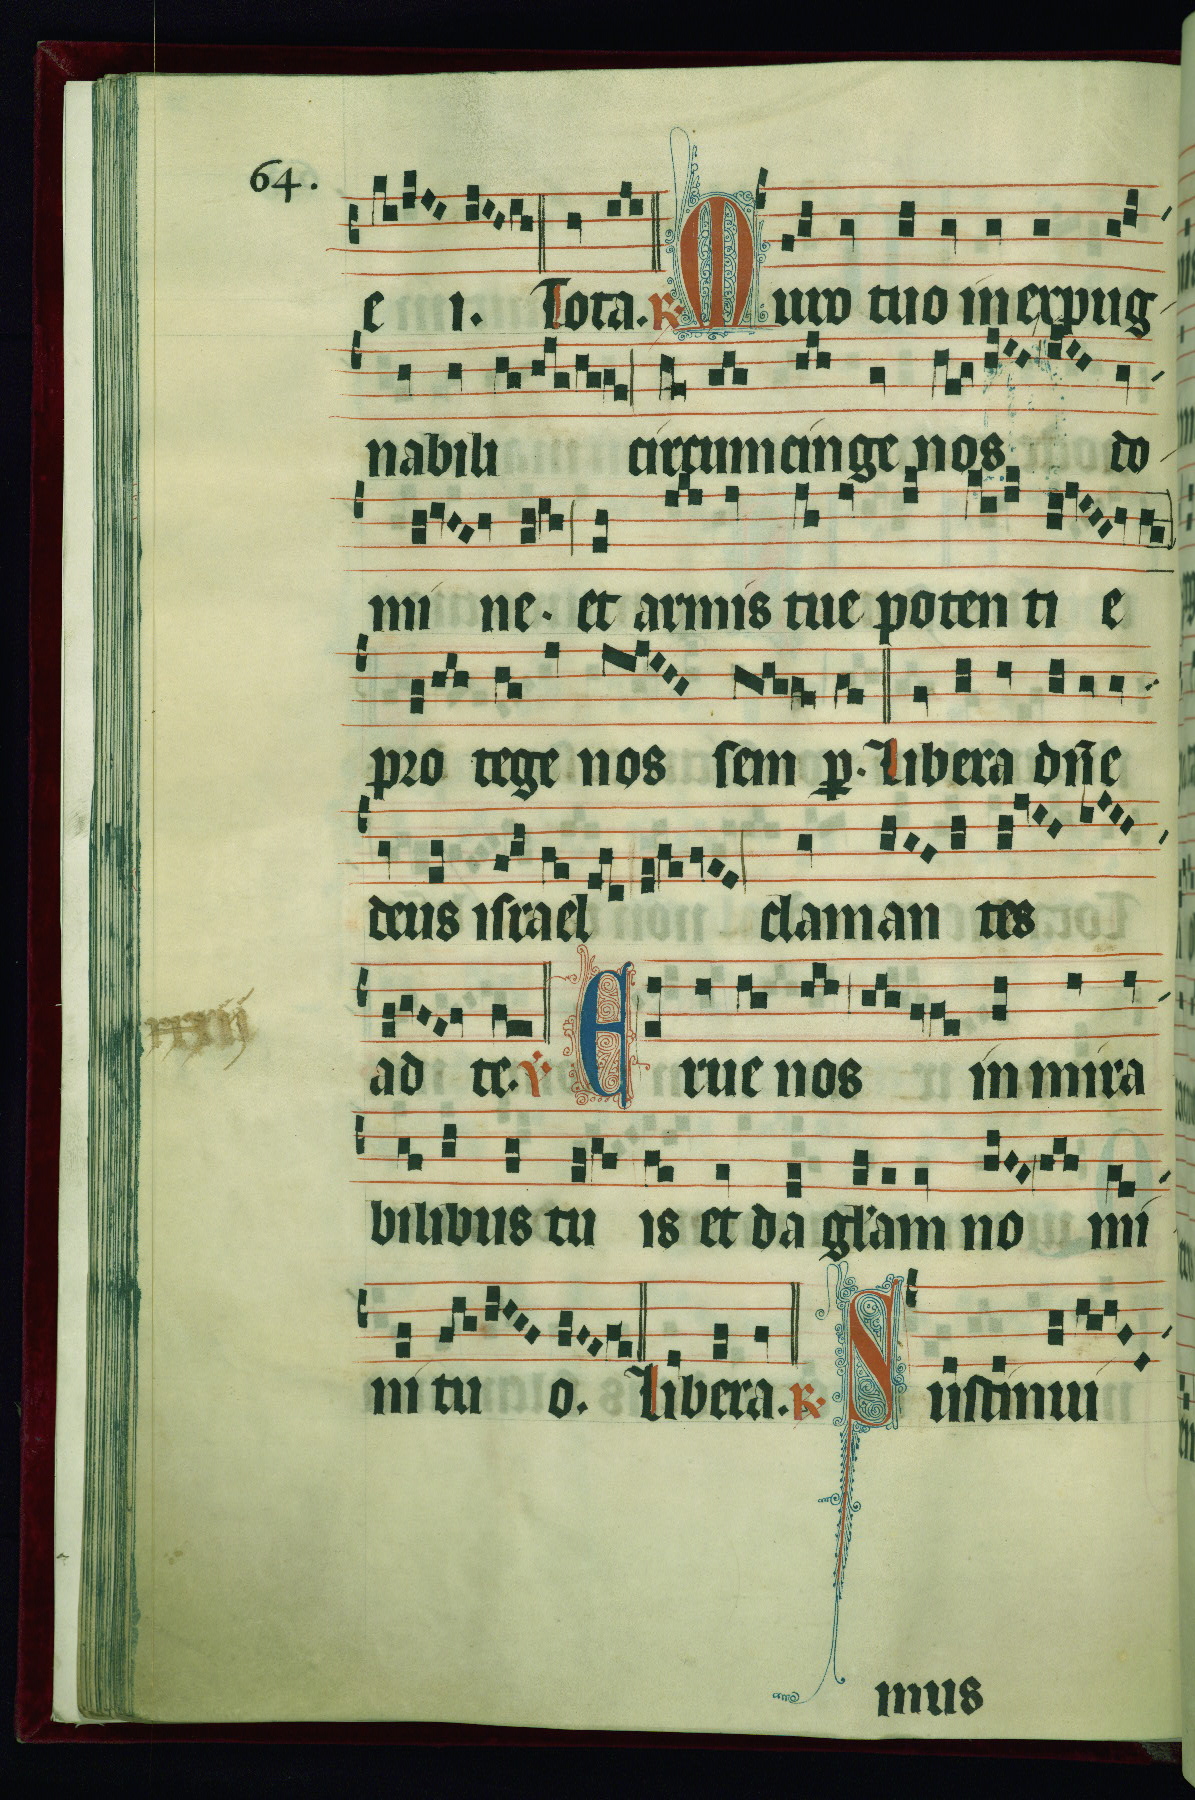 64.
e i. Tota. R. Muro tuo inexpug
nabili circumcinge nos do
mi ne. et armis tue potenti e
pro tege nos sem p. Libera dñe
deus israel claman tes
ad te. V. Erue nos in mira
bilibus tu is et da gl'am no mi
ni tu o. Libera. R. Sustinui
mus